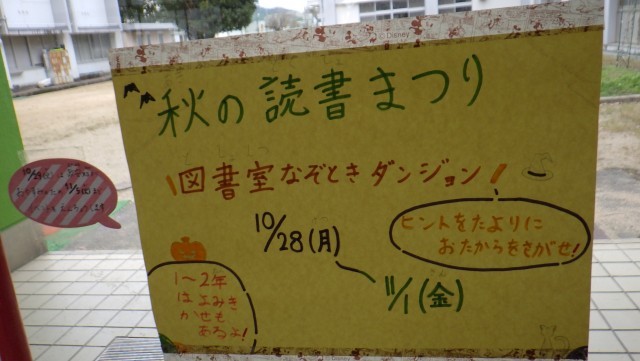 © Disney
秋の読書まつり
図書室なぞときダンジョン
10/28(月)
11/1(金)
ヒントをたよりに
おたからをさがせ!
1～2年
はよみき
かせも
あるよ!